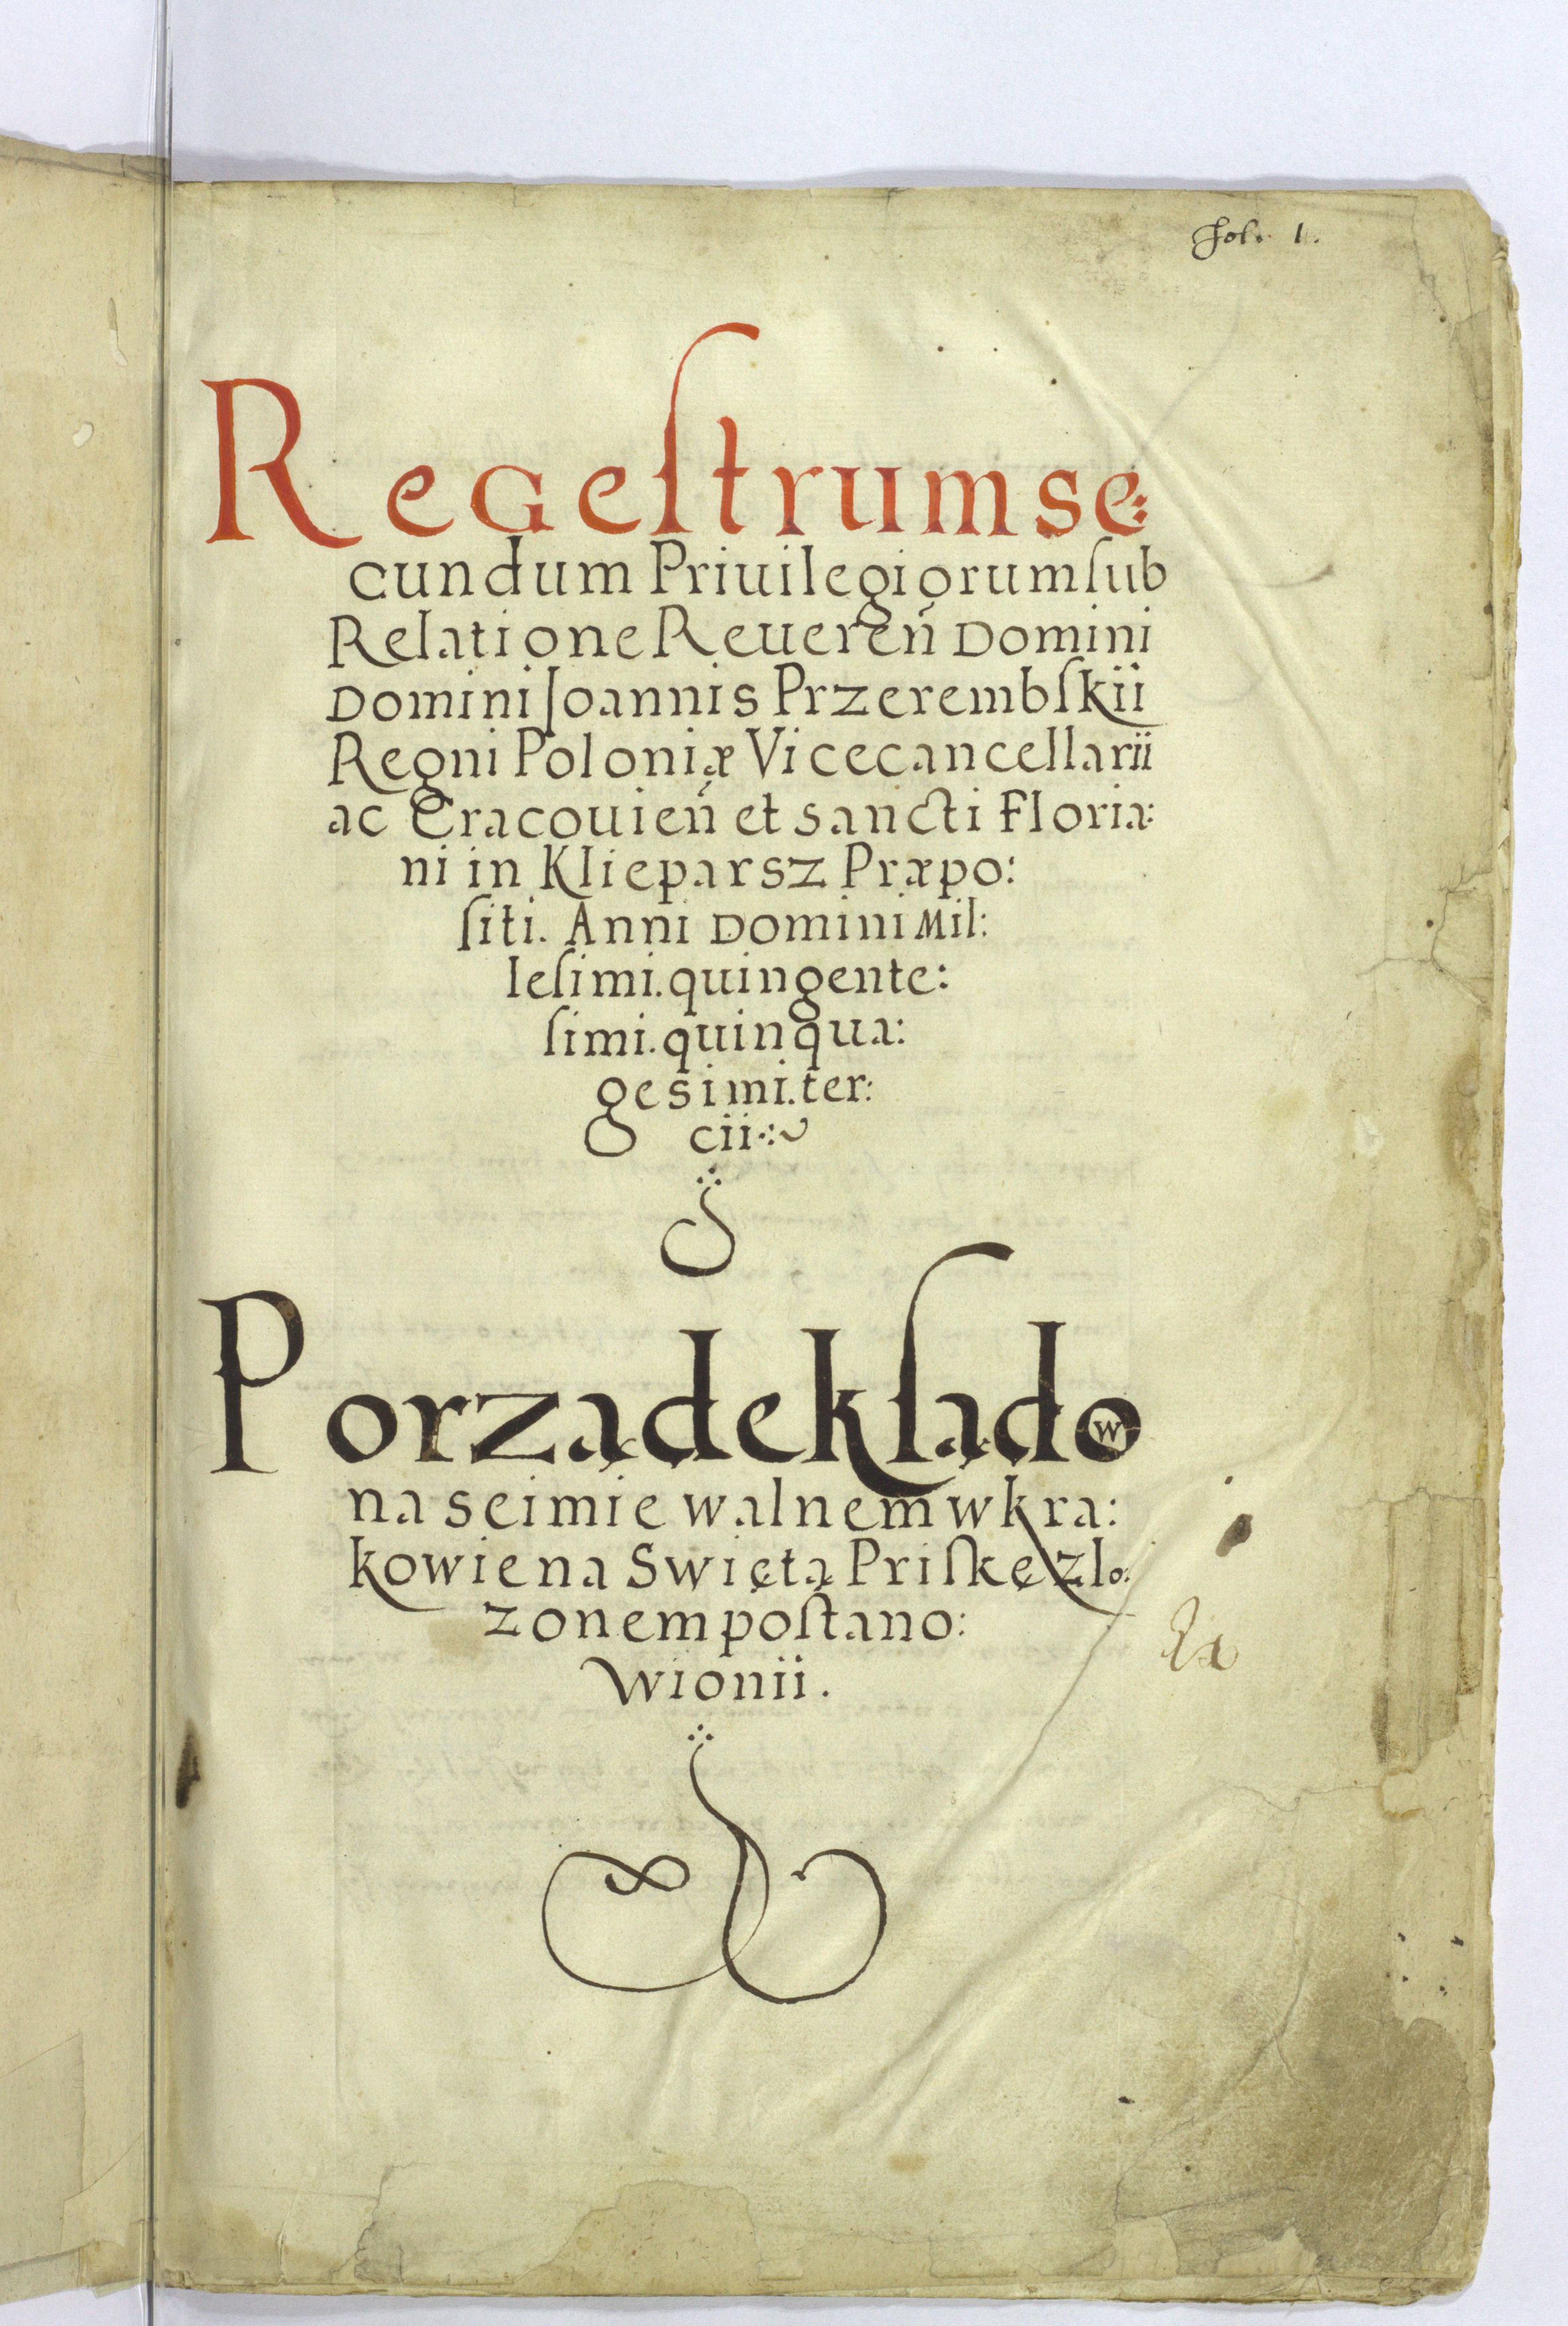 Fol. 1.
Regeſtrum se:
cundum Priuilegiorum ſub
Relatione Reueren̄ Domini
Domini Joannis Przerembſkii
Regni Poloniæ Vicecancellarii
ac Cracouien̄ et sancti Floria:
ni in Klieparsz Præpo:
ſiti. Anni Domini Mil:
leſimi. quingente:
ſimi. quinqua:
gesimi. ter:
cii
Porządek ſądow
na seimie walnem w kra:
kowie na Swiętą Priſkę zlo:
zonem poſtano:
wionii.